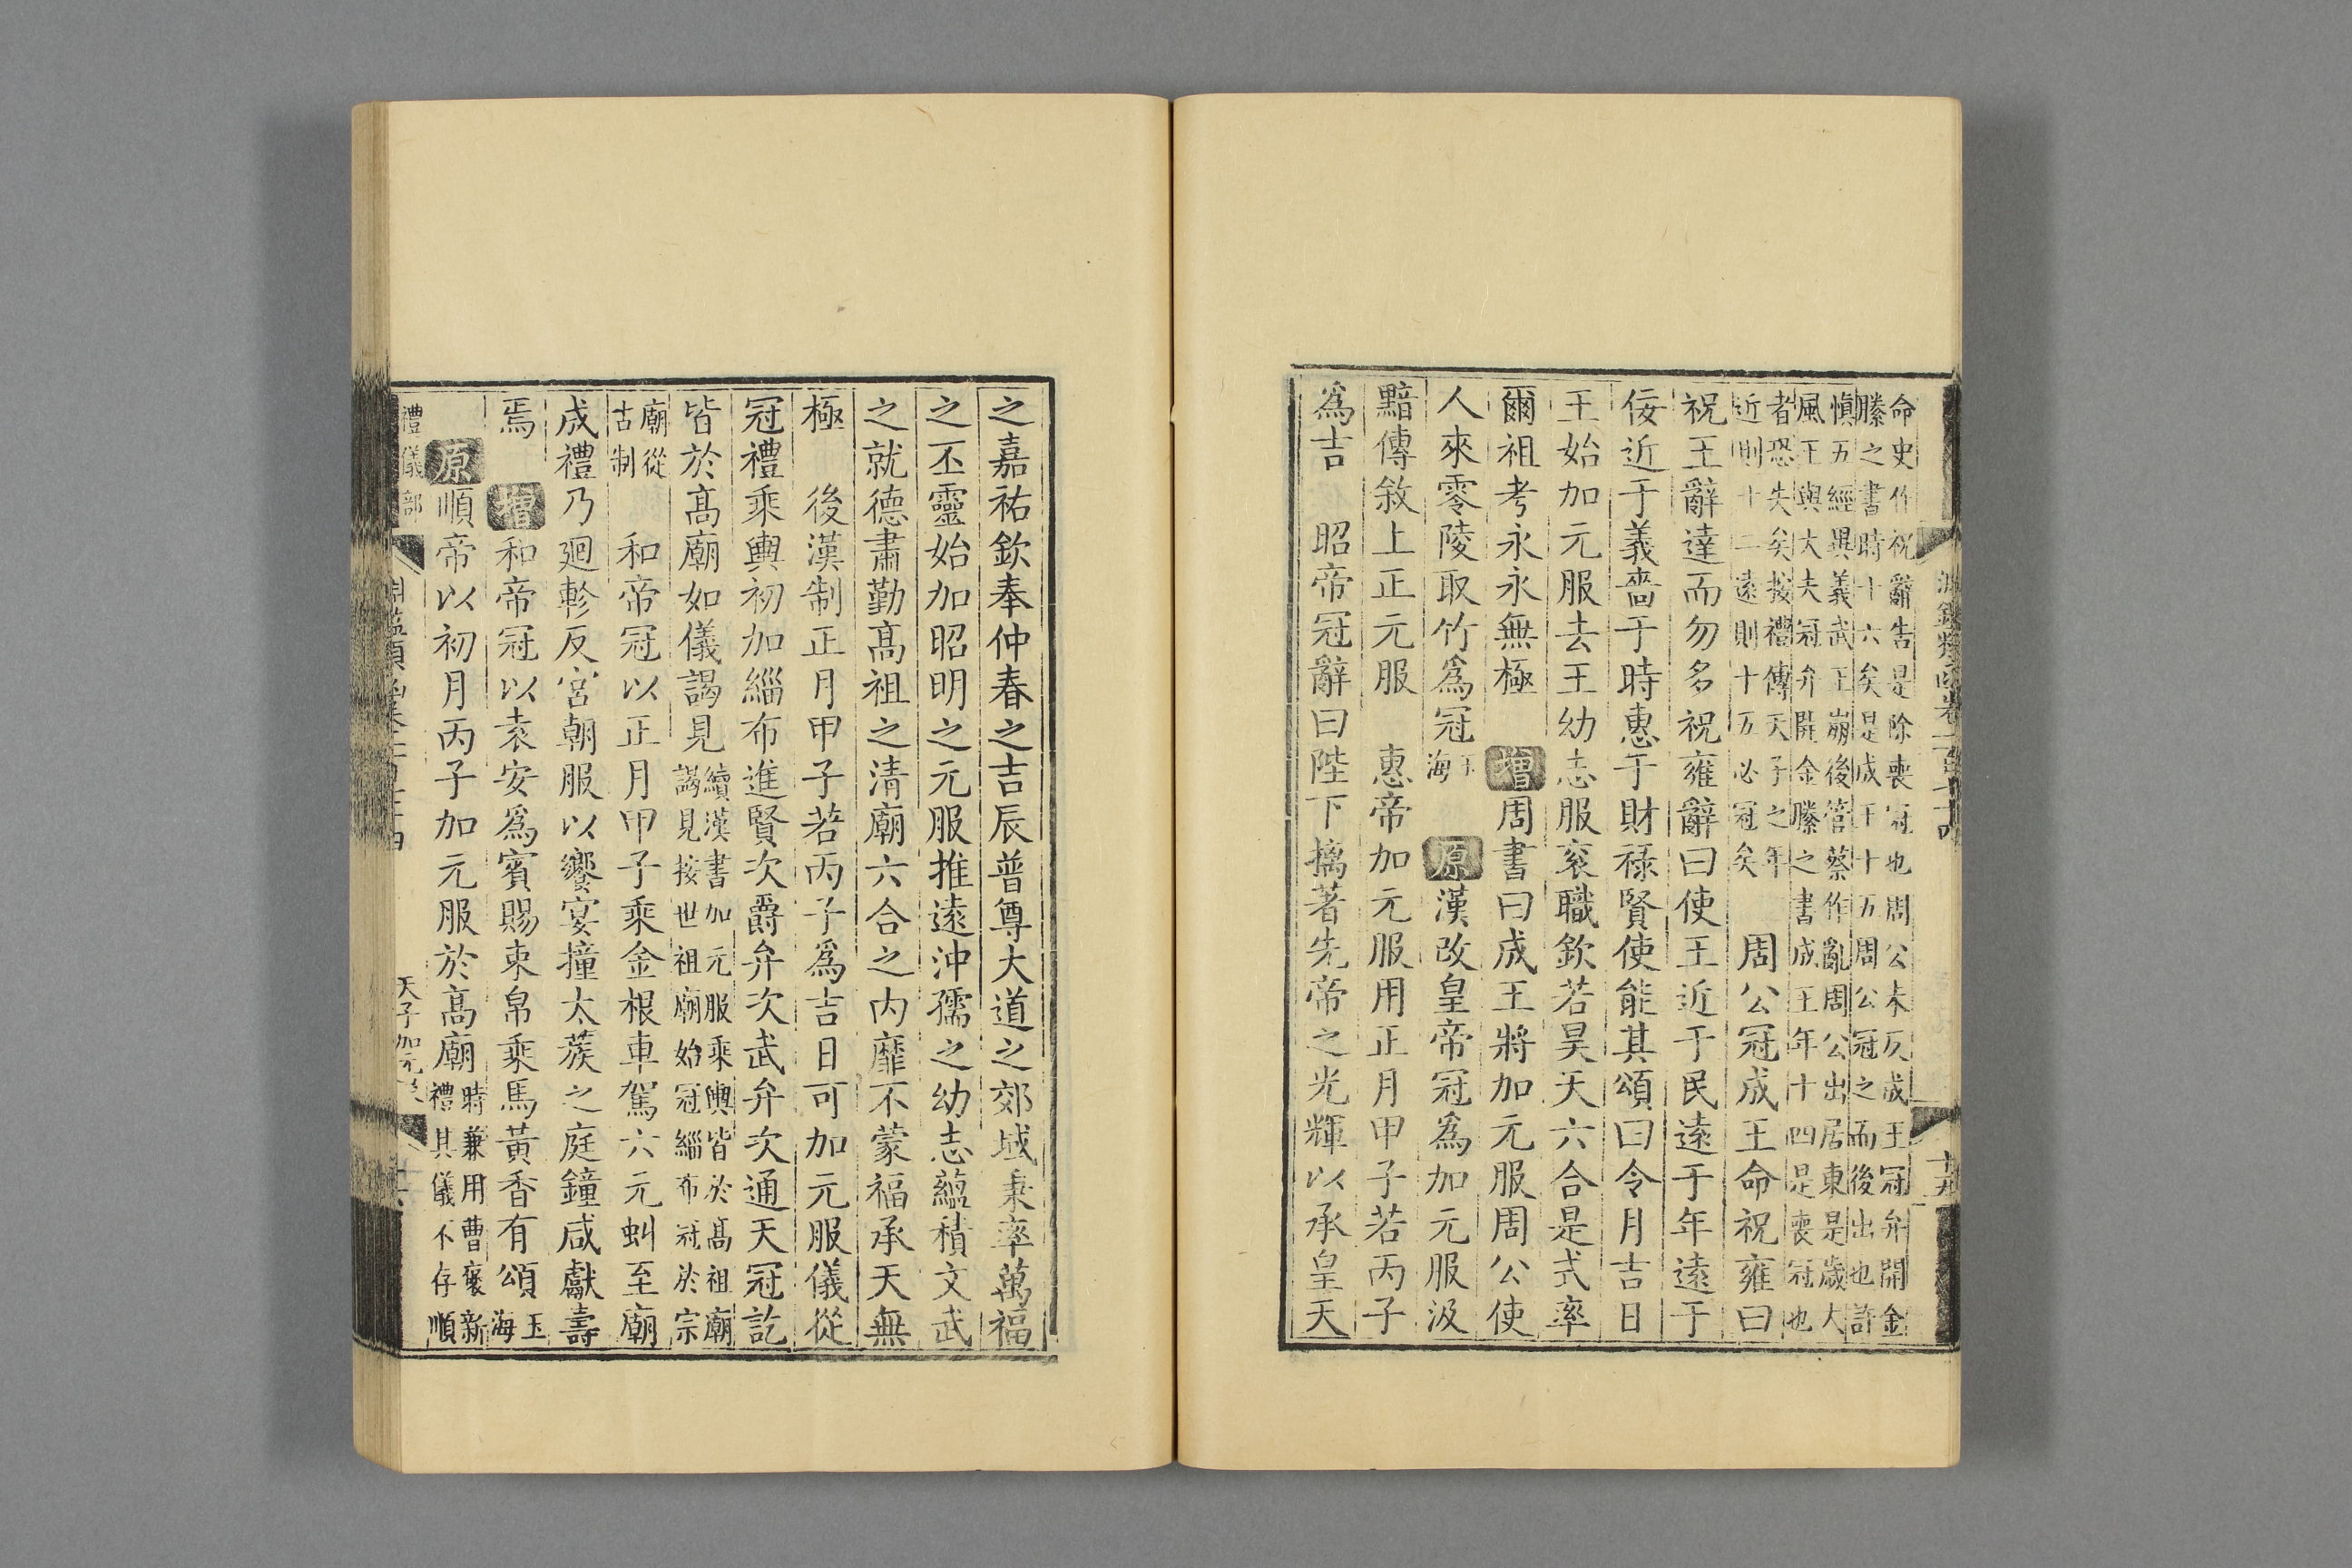 命史作祝辭告是除喪冠也周公未反成王冠弁開金
縢之書時十六矣是成王十五周公冠之而後出也許
慎五經異義武王崩後管蔡作亂周公出居東是歲大
風王與大夫冠弁開金縢之書成王年十四是喪冠也
者恐失矣按禮傳天子之年近則十二遠則十五必冠矣　周公冠成王命祝雍曰
祝王辭達而勿多祝雍辭曰使王近于民遠于年遠于
佞近于義嗇于時惠于財祿賢使能其頌曰令月吉日
王始加元服去王幼志服袞職欽若昊天六合是式率
爾祖考永永無極　增周書曰成王將加元服周公使
人來零陵取竹爲冠玉海　原漢改皇帝冠爲加元服汲
黯傳敘上正元服　惠帝加元服用正月甲子若丙子
爲吉　昭帝冠辭曰陛下摛著先帝之光輝以承皇天
之嘉祐欽奉仲春之吉辰普尊大道之郊域秉率萬福
之丕靈始加昭明之元服推遠沖孺之幼志蘊積文武
之就德肅勤高祖之清廟六合之內靡不蒙福承天無
極　後漢制正月甲子若丙子爲吉日可加元服儀從
冠禮乘輿初加緇布進賢次爵弁次武弁次通天冠訖
皆於高廟如儀謁見續漢書加元服乘輿皆於高祖廟謁見按世祖廟始冠緇布冠於宗
廟從古制　和帝冠以正月甲子乘金根車駕六元虯至廟
成禮乃廻軫反宮朝服以饗宴撞太蔟之庭鐘咸獻壽
焉　增和帝冠以袁安爲賓賜束帛乘馬黃香有頌玉海
原順帝以初月丙子加元服於高廟時兼用曹褒新禮其儀不存順
禮儀部
天子加元服